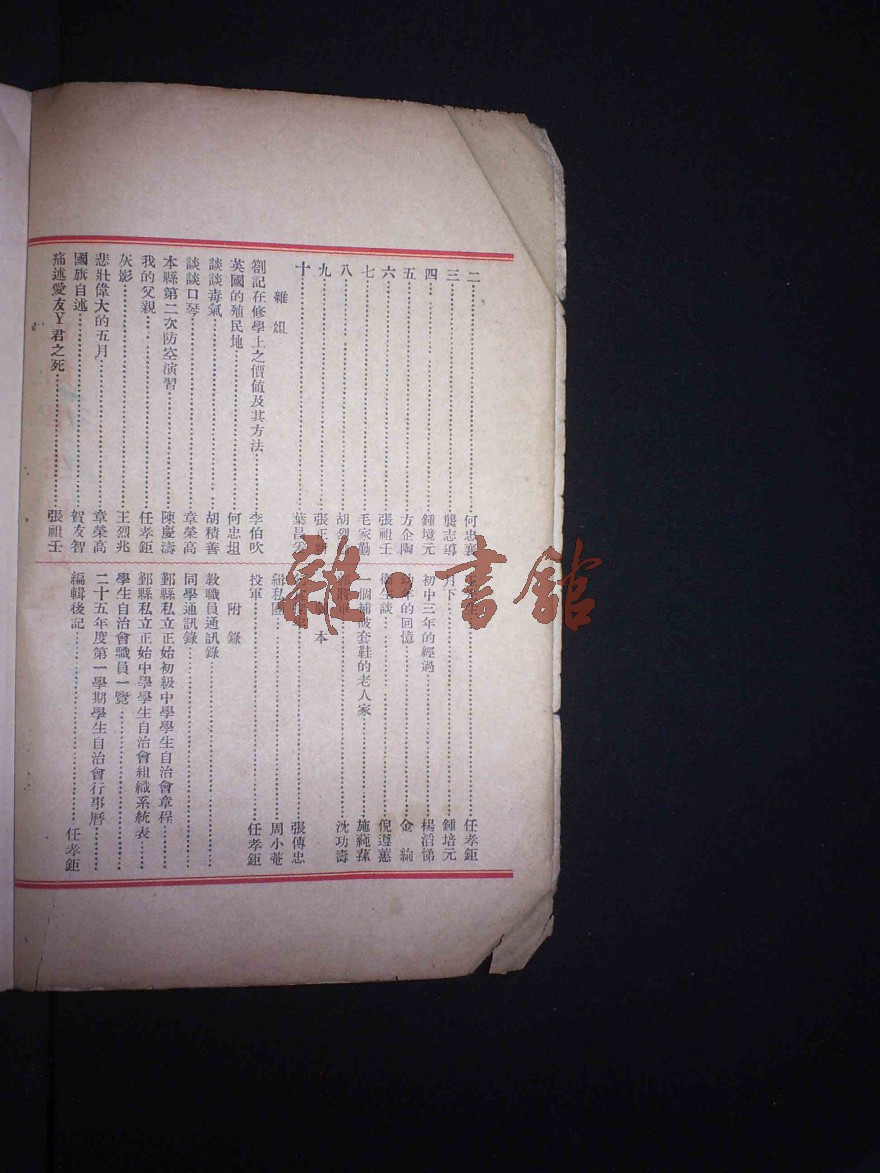 二……何忠襄
三……龔志導
四……鍾境元
五……方企陶
六……張祖壬
七……毛家勤
八……胡烈
九……張正
十……葉昌
雜俎
劄記在修學上之價值及其方法……李伯吹
英國的殖民地……何忠垣
談談毒氣……胡積善
談談口琴……章榮高
本縣第二次防空演習……陳慶濤
我的父親……任孝鉅
灰影……王烈兆
悲壯偉大的五月……章榮高
國旗自述……賀友智
痛述愛友丫君之死……張祖壬
……任孝鉅
月下……鍾培元
初中三年的經過……楊滔悌
年的回憶……金絢
衛生談……倪遵蕙
一個補破套鞋的老人家……施純蓀
……沈功濤
本
……張傳忠
緝私團……周小菴
投軍……任孝鉅
附錄
教職員通訊錄
同學通訊錄
鄞縣私立正始初級中學學生自治會章程
鄞縣私立正始中學學生自治會組織系統表
學生自治會職員一覽
二十五年度第一學期學生自治會行事曆
編輯後記……任孝鉅
雜·書館